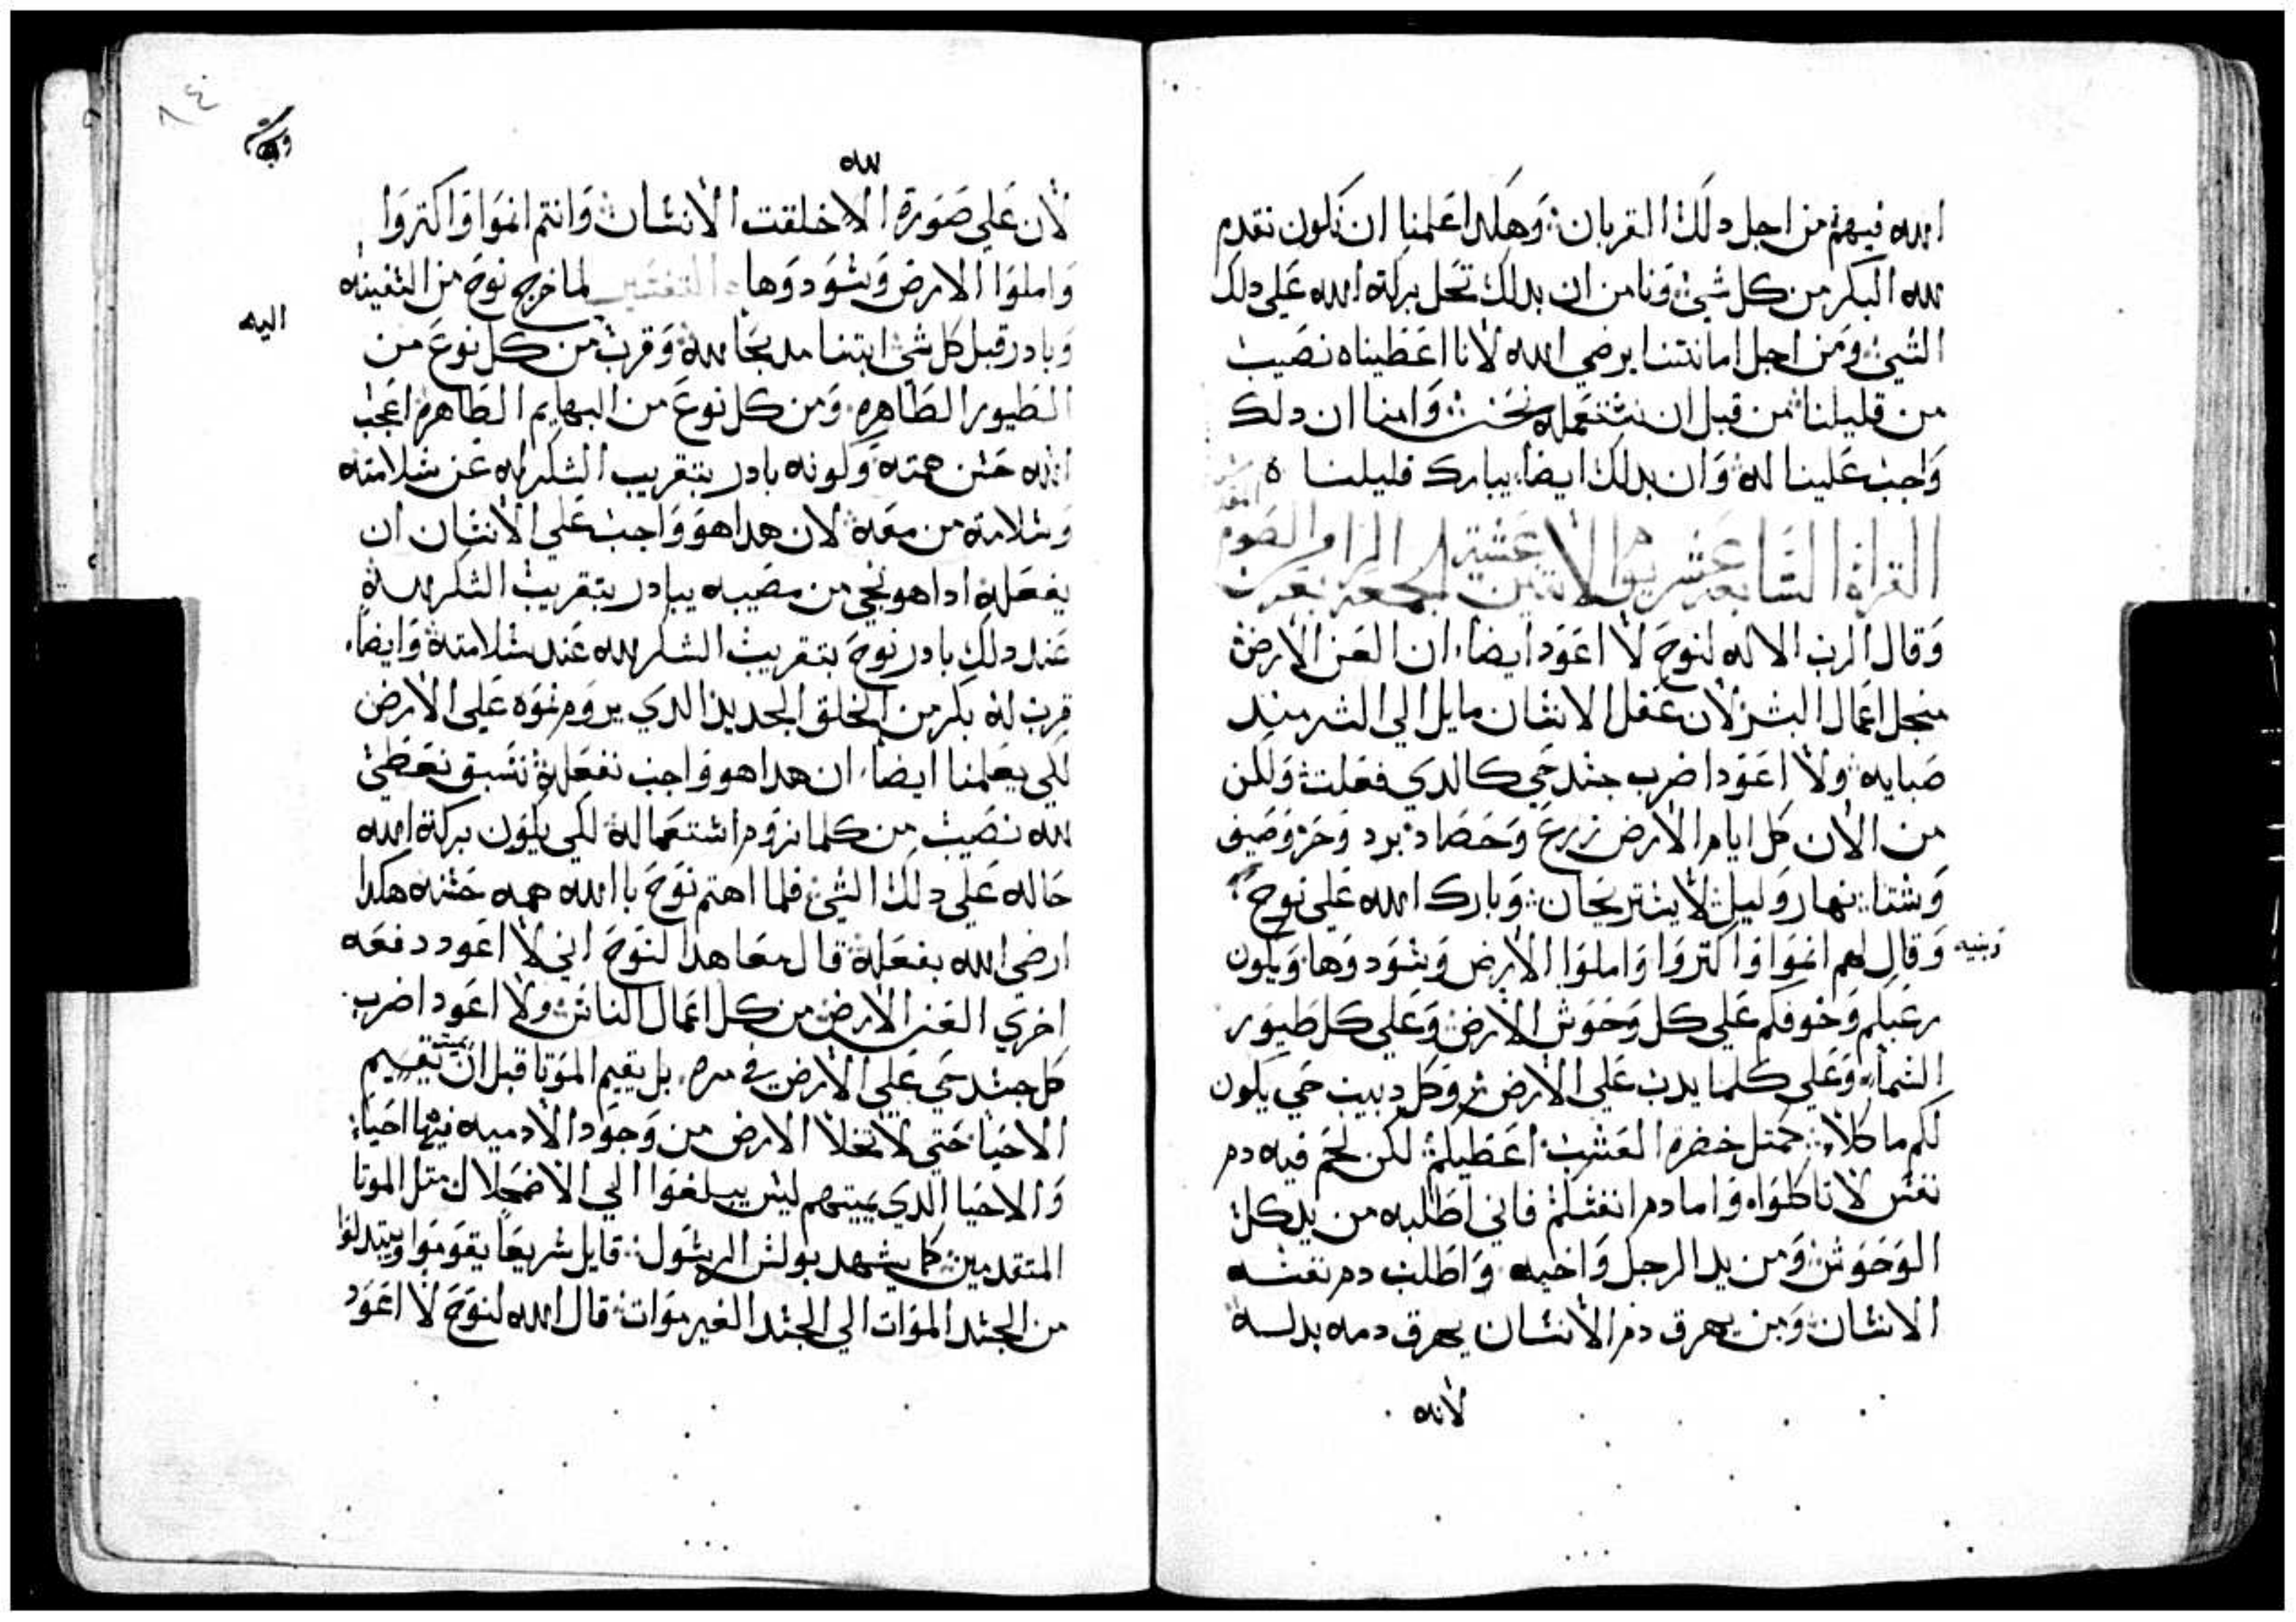 الله فيهم من اجل دلك القربان وهكدا علمنا ان نكون نقدم
لله البكر من كل شي ونامن ان بدلك تحل بركة الله علي دلك
الشي ومن اجل امانتنا يرضي الله لانا اعطيناه نصيب
من قليلنا من قبل ان نستعمله نحن وامنا ان دلك
واجب علينا له وان بدلك ايضا يبارك قليلنا ه
القراة السابعة عشر يوم الاتنين عشية الجمعة من الصوم
وقال الرب الاله لنوح لا اعود ايضا ان العن الارض
منجل اعمال البشر لان عقل الانسان مايل الي الشر مند
صبايه ولا اعود اضرب جسد حي كالدي فعلت ولكن
من الان كل ايام الارض زرع وحصاد برد وحر وصيف
وشتا نهار وليل لا يستريحان وبارك الله علي نوح
وبنيه وقال لهم انموا واكتروا واملوا الارض وسودوها ويكون
رعبكم وخوفكم علي كل وحوش الارض وعلي كل طيور
السماء وعلي كلما يدب علي الارض وكل دبيب حي يكون
لكم ماكلا كمتل خضرة العشب اعطيكم لكن لحم فيه دم
نفس لا تاكلواه واما دم انفسكم فاني اطلبه من يد كل
الوحوش ومن يد الرجل واخيه واطلب دم نفسه
الانسان ومن يهرق دم الانسان يهرق دمه بدله
لانه
٨٤
لله
لان علي صورة الله خلقت الانسان وانتم انموا واكتروا
واملوا الارض وسودوها التفسير لما خرج نوح من السفينه
وبادر قبل كل شي ابتنا مدبحا لله وقرب من كل نوع من
الطيور الطاهره ومن كل نوع من البهايم الطاهره اعجب
اليه
الله حسن همته ولونه بادر بتقريب الشكر له عن سلامته
وسلامة من معه لان هدا هو واجب علي الانسان ان
يفعله ادا هو نجي من مصيبه يبادر بتقريب الشكر لله
عند دلك بادر نوح بتقريب الشكر لله عند سلامته وايضا
قرب له بكر من الخلق الجديد الدي يروم نموه علي الارض
لكي يعلمنا ايضا ان هدا هو واجب نفعله نسبق نعطي
لله نصيب من كلما نروم استعماله لكي يكون بركة الله
حاله علي دلك الشي فلما اهتم نوح بالله همه حسنه هكدا
ارضي الله بفعله قال معاهدا لنوح اني لا اعود دفعه
اخري العن الارض من كل اعمال الناس ولا اعود اضرب
كل جسد حي علي الارض في مره بل يقيم الموتا قبل ان تقسيم
الاحيا حتي لا تخلا الارض من وجود الادميه فيها احيا
والاحيا الدي يميتهم ليس يبلغوا الي الاضمحلال متل الموتا
المتقدمين كما يشهد بولس الرسول قايل سريعا يقوموا ويتبدلوا
من الجسد الموات الي الجسد الغير موات قال الله لنوح لا اعود